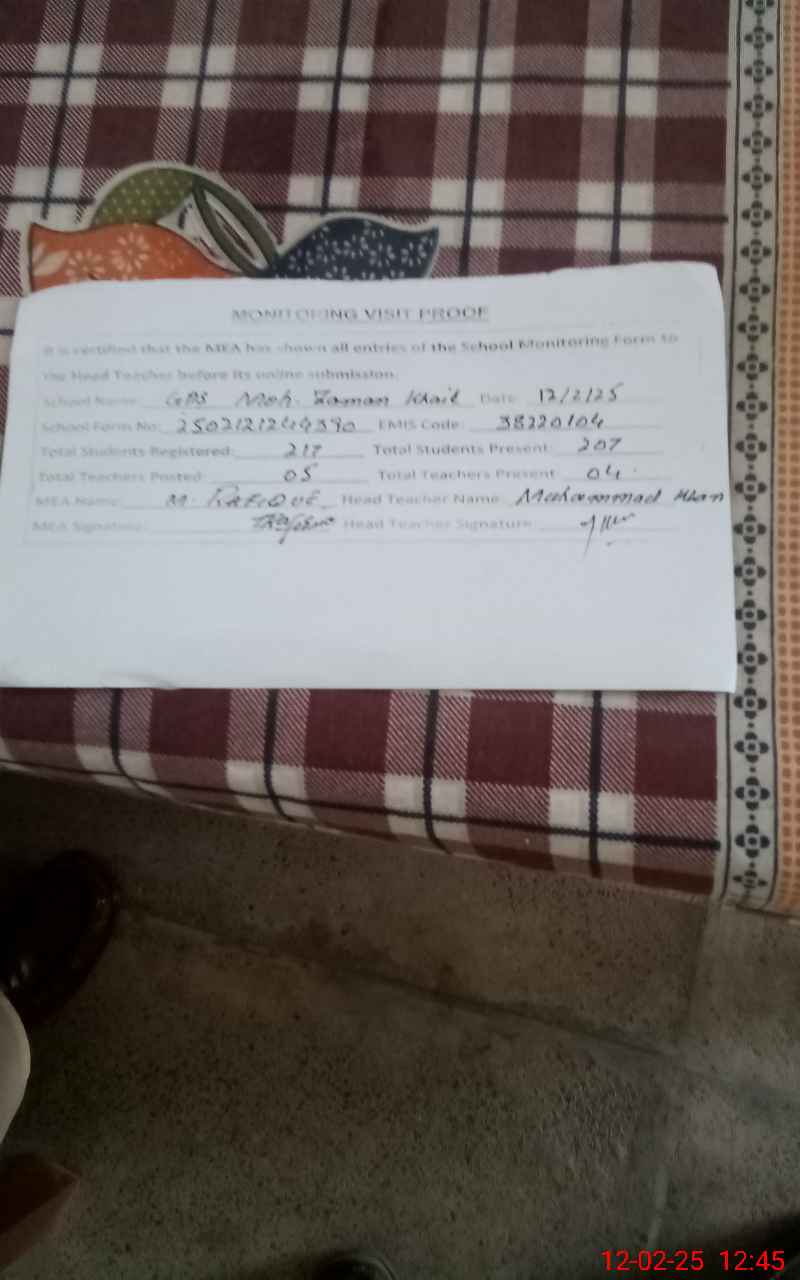 MONITORING VISIT PROOF
It is certified that the MEA has shown all entries of the School Monitoring Form to
the Head Teacher before its online submission.
School Name: GPS Moh. Zaman Khail Date: 12/2/25
School Form No: 2502121244390 EMIS Code: 38220104
Total Students Registered: 217 Total Students Present: 207
Total Teachers Posted: 05 Total Teachers Present 04
MEA Name: M. RAFIQUE Head Teacher Name: Muhammad Khan
MEA Signature: Head Teacher Signature
12-02-25 12:45